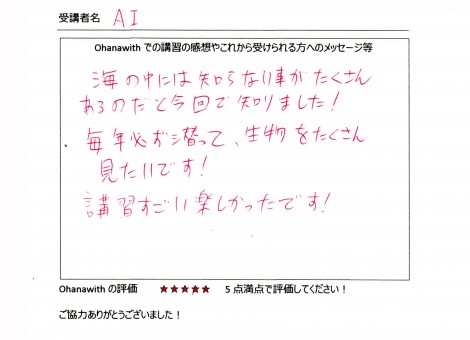 受講者名 AI
Ohanawith での講習の感想やこれから受けられる方へのメッセージ等
海の中には知らない事がたくさん
あるのだと今回で知りました!
毎年必ず潜って、生物をたくさん
見たいです!
講習すごい楽しかったです!
Ohanawith の評価 ★★★★★ 5 点満点で評価してください!
ご協力ありがとうございました!